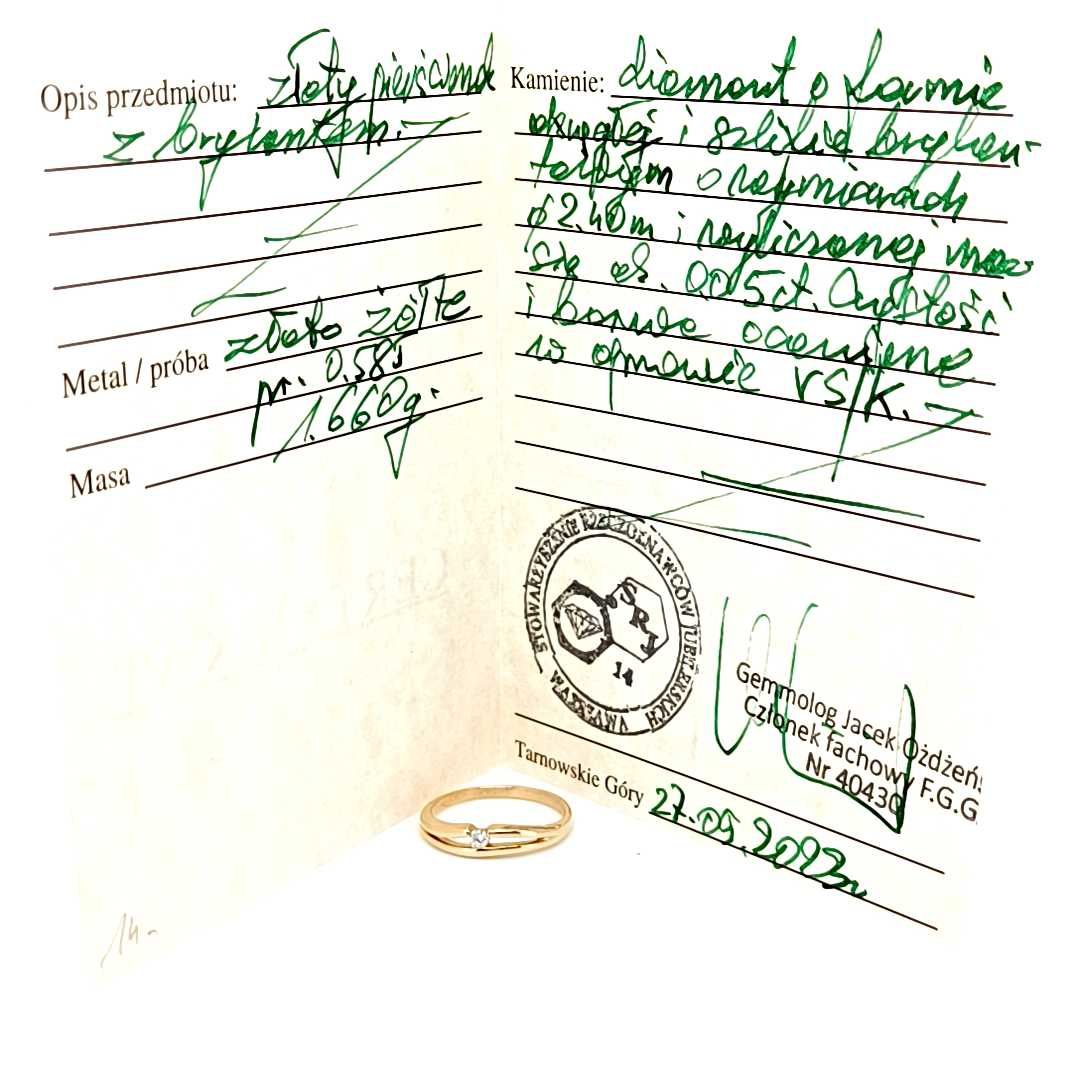 Opis przedmiotu: złoty pierścionek
z brylantem.
Metal / próba złoto żółte
pr. 0.585
1.660g.
Masa
Kamienie: diament o formie
okrągłej i szlifie brylan-
towym o wymiarach
ϕ 2.40m i wyliczonej ma-
sie ok. 0.05ct. Czystość
i barwa ocenione
w oprawie VS/K.
STOWARZYSZENIE RZECZOZNAWCÓW JUBILERSKICH
WARSZAWA
SRJ
14
Gemmolog Jacek Ożdżeń
Członek fachowy F.G.G.
Nr 40430
Tarnowskie Góry 27.09.2023r
14-